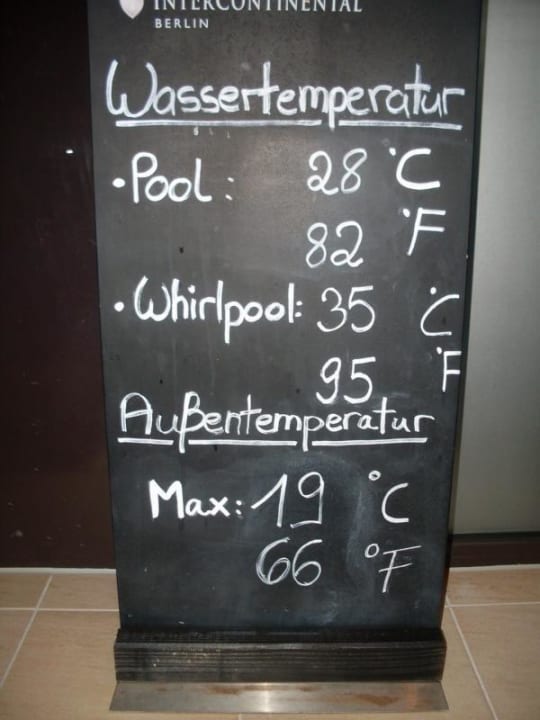 INTERCONTINENTAL
BERLIN
Wassertemperatur
• Pool: 28 °C
82 °F
• Whirlpool: 35 °C
95 °F
Außentemperatur
Max: 19 °C
66 °F